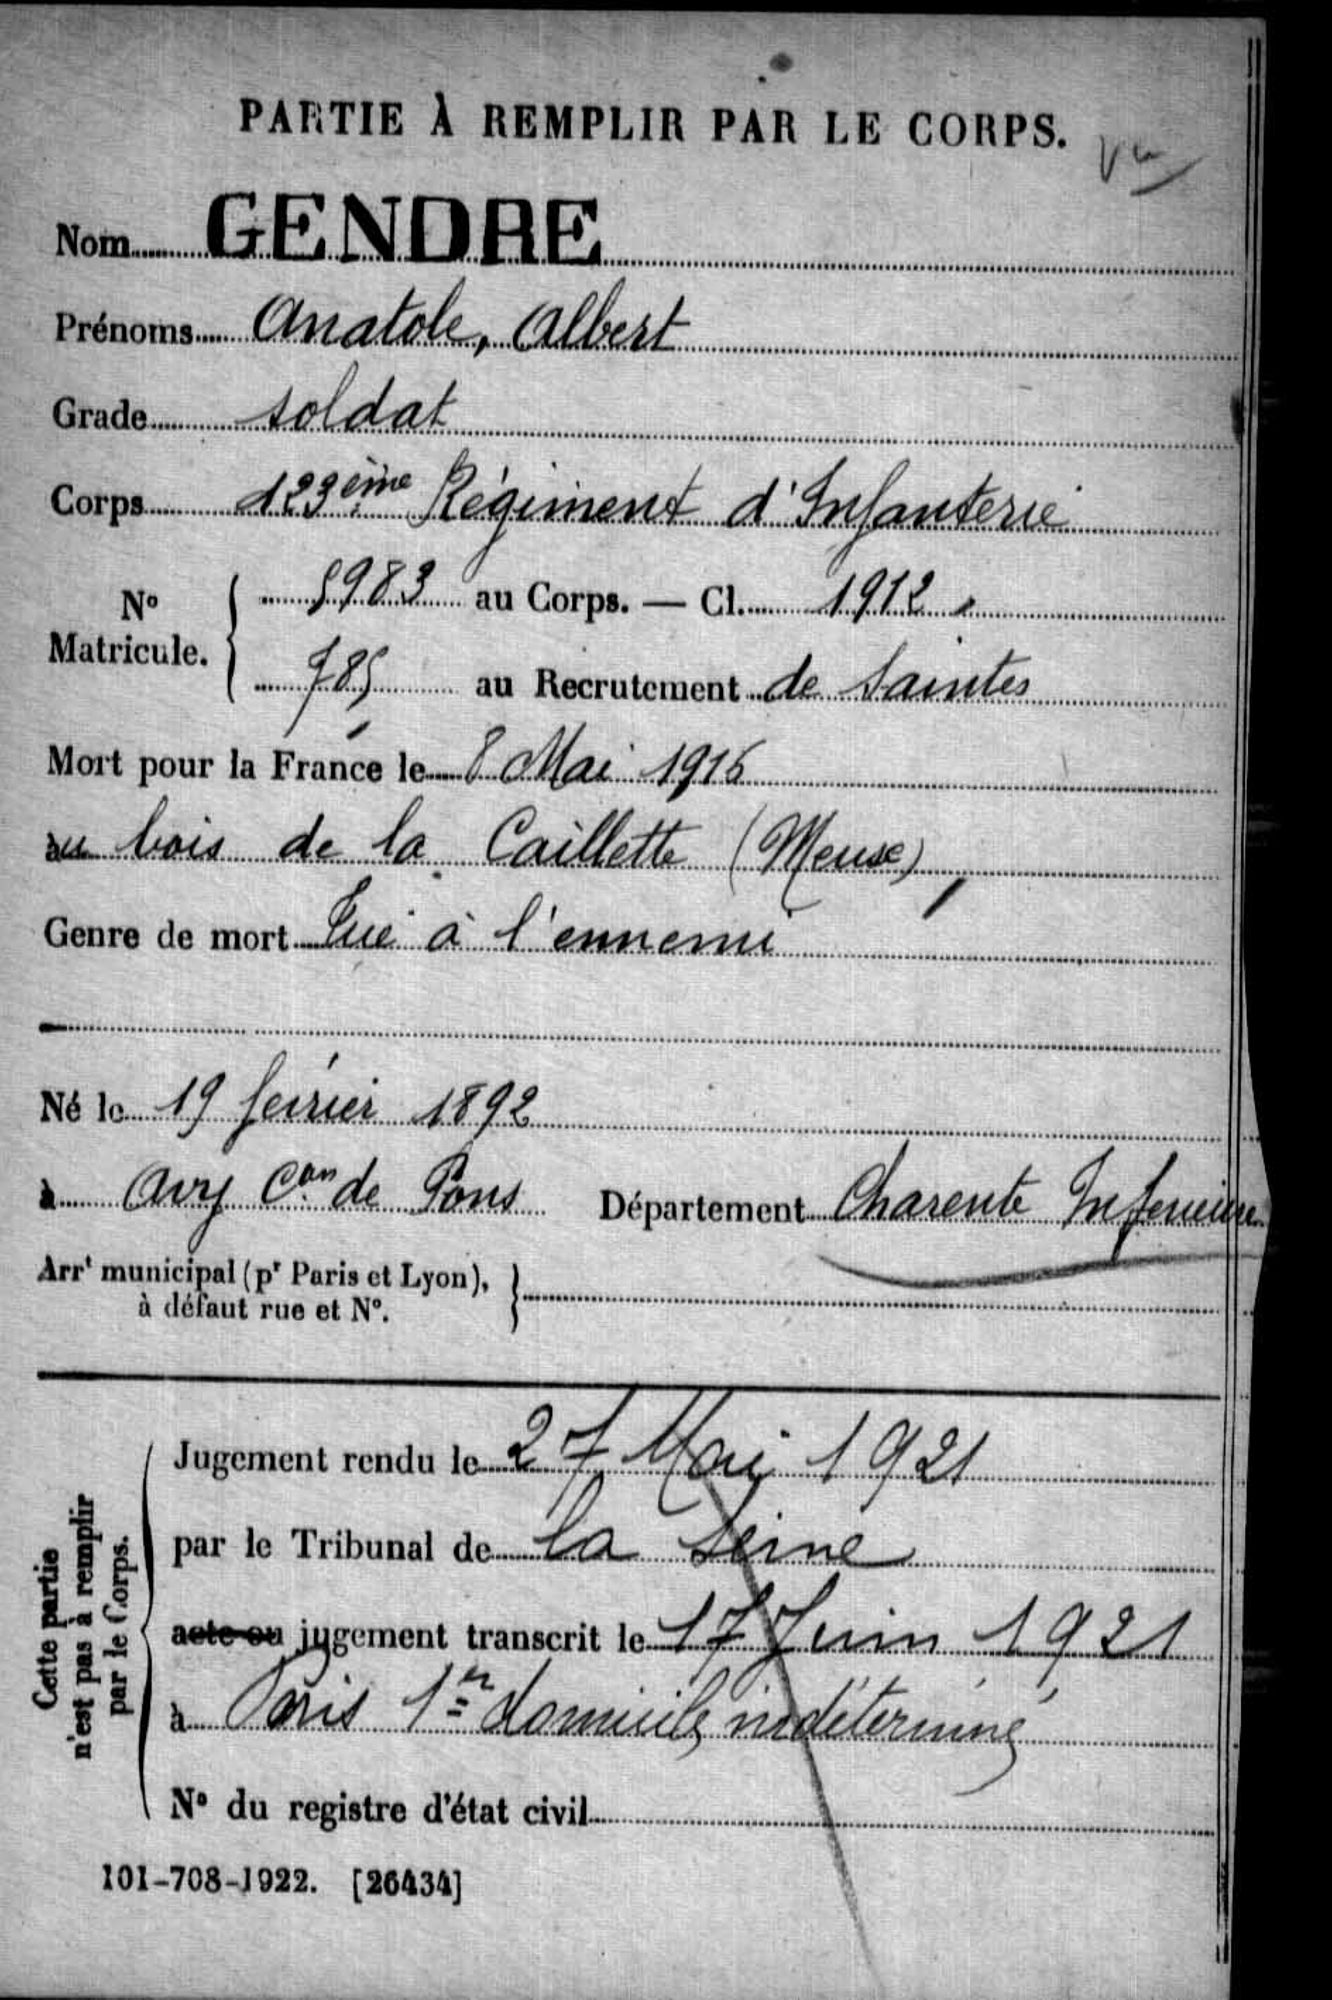 PARTIE À REMPLIR PAR LE CORPS.
Vu
Nom GENDRE
Prénoms Anatole, Albert
Grade soldat
Corps 123ème Régiment d'Infanterie
No Matricule. { 5983 au Corps. — Cl. 1912
785 au Recrutement de Saintes
Mort pour la France le 8 Mai 1916
au bois de la Caillette (Meuse)
Genre de mort Tué à l'ennemi
Né le 19 février 1892
à Avy Con de Pons Département Charente Inférieure
Arrt municipal (pr Paris et Lyon), à défaut rue et No. }
Cette partie n'est pas à remplir par le Corps.
Jugement rendu le 27 Mai 1921
par le Tribunal de la Seine
acte ou jugement transcrit le 17 Juin 1921
à Paris 1er domicile indéterminé
No du registre d'état civil
101-708-1922. [26434]